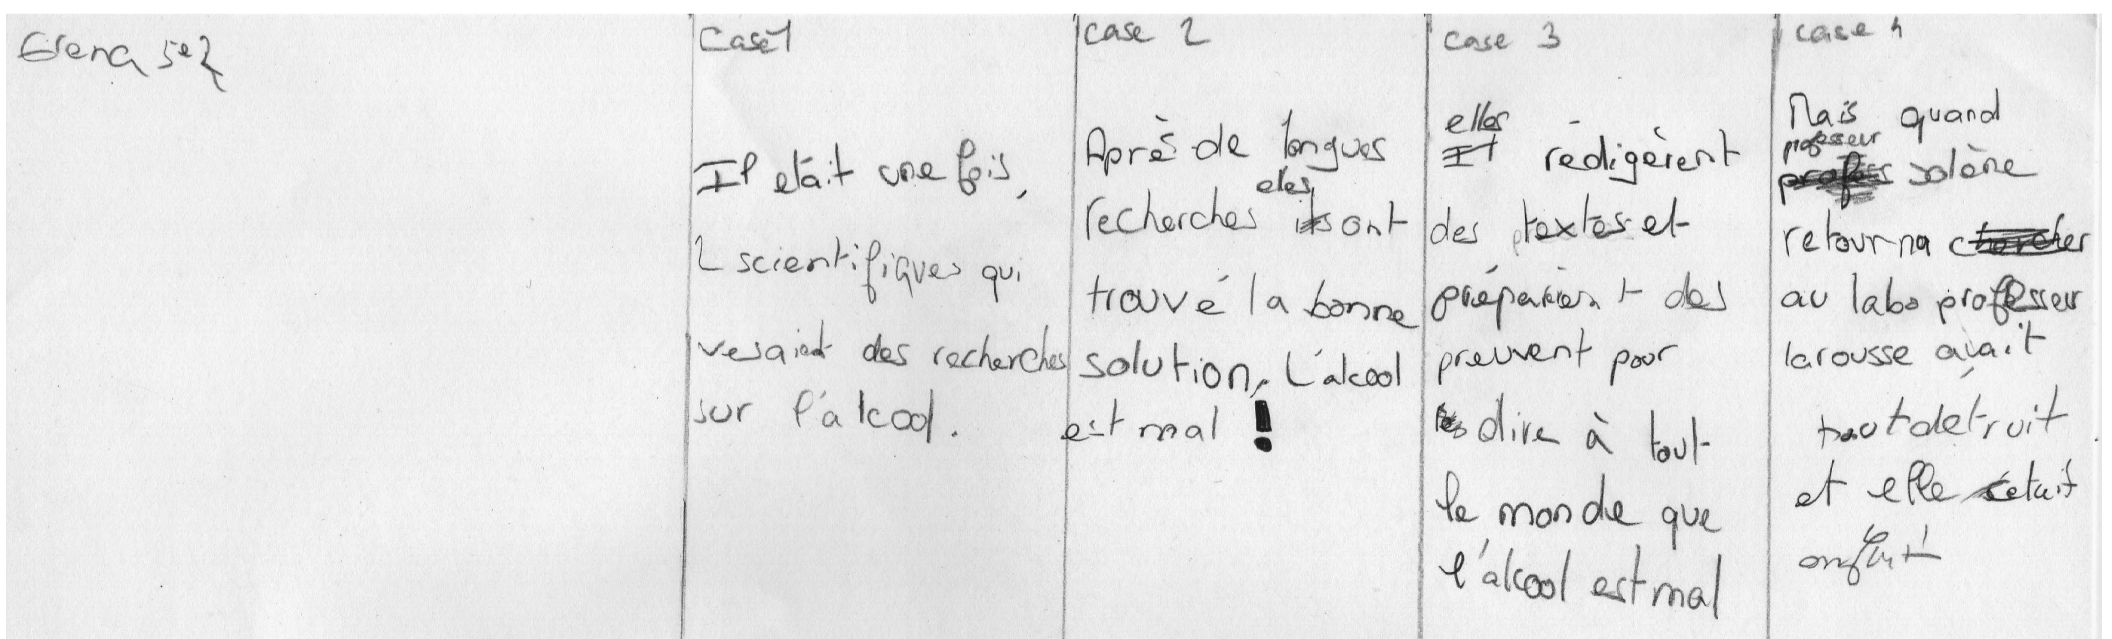 5e2
Case 1
Il etait une fois,
2 scientifiques qui
vesaient des recherches
sur l'alcool.
case 2
Après de longues
elles
recherches ils ont
trouvé la bonne
solution, L'alcool
est mal !
case 3
elles
Il rédigèrent
des textes et
préparèrent des
preuvent pour
dire à tout
le monde que
l'alcool est mal
case 4
Mais quand
professeur
solène
retourna chercher
au labo professeur
larousse avait
tout détruit
et elle c'etait